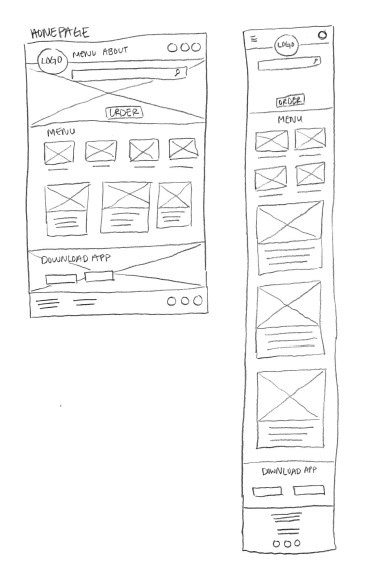 HOMEPAGE
LOGO MENU ABOUT
ORDER
MENU
DOWNLOAD APP
LOGO
ORDER
MENU
DOWNLOAD APP